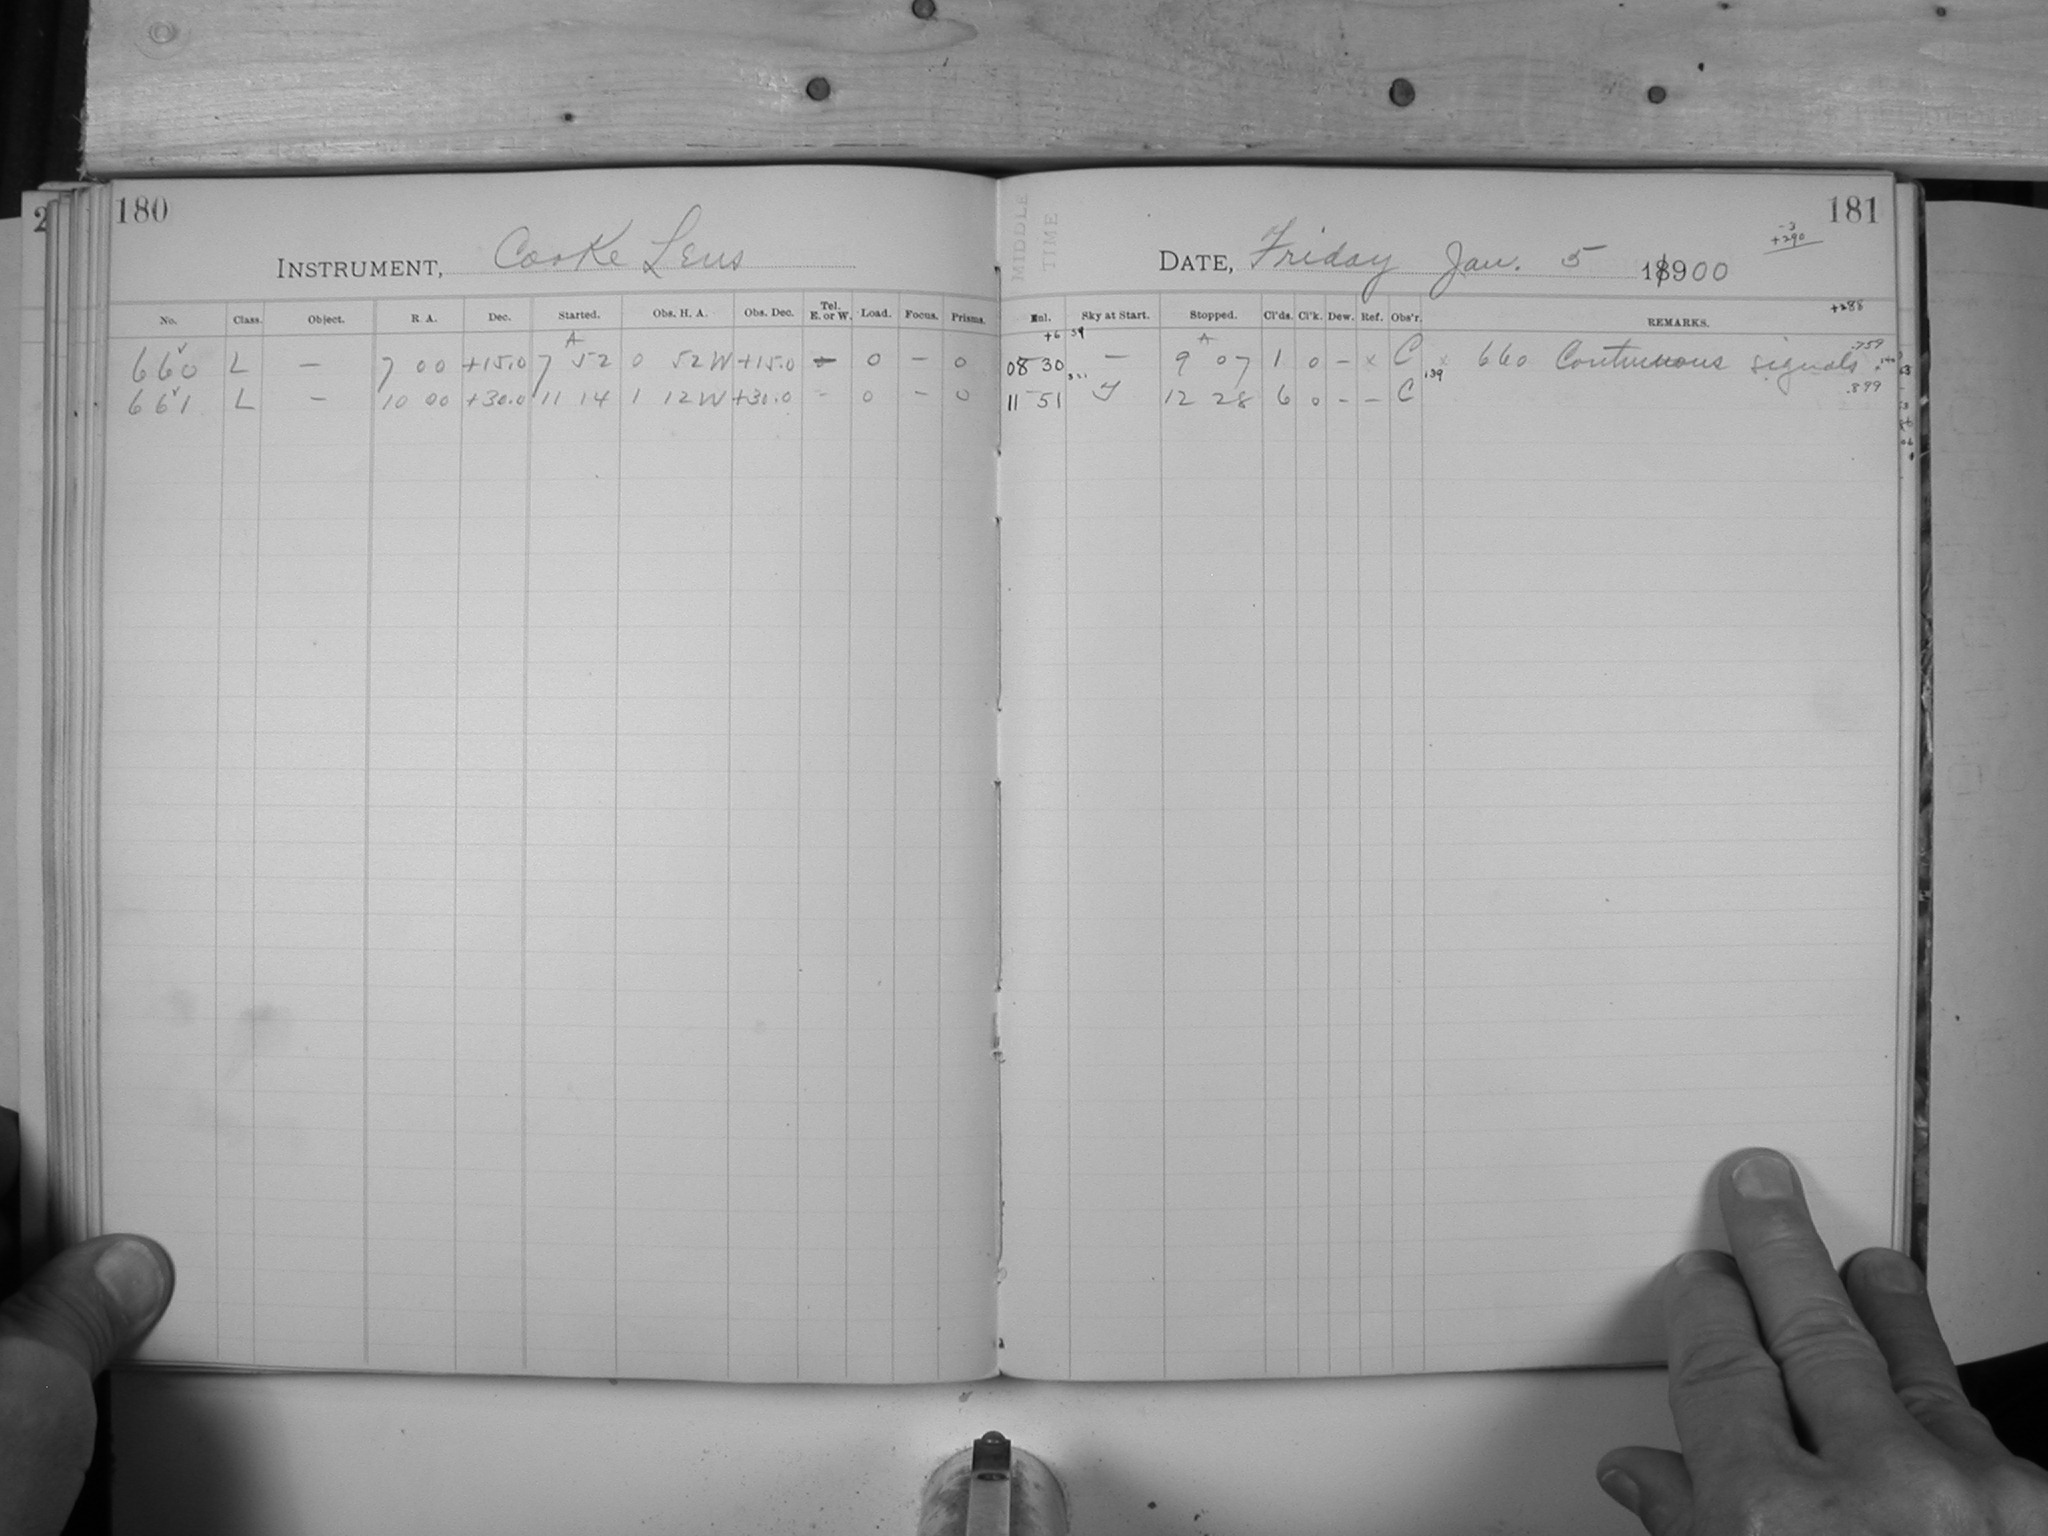 180
INSTRUMENT, Cooke Lens
No. Class. Object. R. A. Dec. Started. Obs. H. A. Obs. Dec. Tel. E. or W. Load. Focus. Prisms.
A
660 L — 7 00 +15.0 7 52 0 52 W +15.0 — 0 — 0
661 L — 10 00 +30.0 11 14 1 12 W +30.0 - 0 — 0
MIDDLE TIME
181
-3
+290
DATE, Friday Jan. 5 18900
+288
Sky at Start. Stopped. Cl'ds. Cl'k. Dew. Ref. Obs'r. REMARKS.
+6 59
A
08 30 — 9 07 1 0 — x C x 660 Continuous signals. .759
139
11 51 12 28 6 0 — — C .899
2